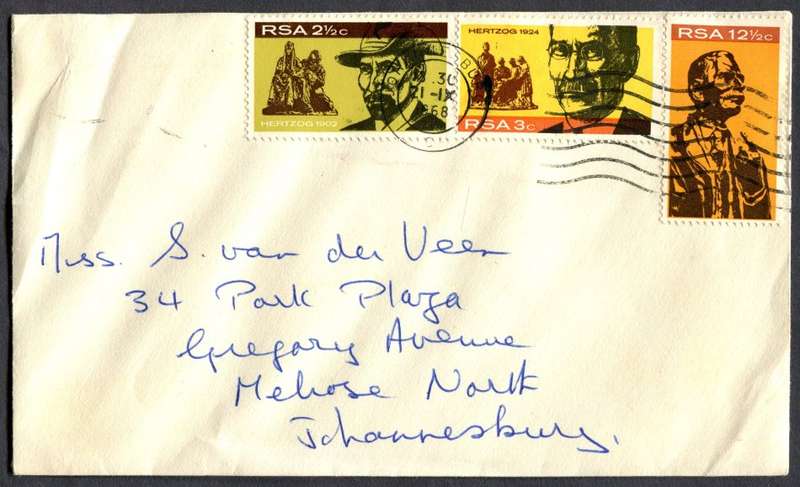 RSA 2½c
HERTZOG 1902
HERTZOG 1924
RSA 3c
RSA 12½c
21-IX
1968
Miss. S. van der Veen
34 Park Plaza
Gregory Avenue
Melrose North
Johannesburg.